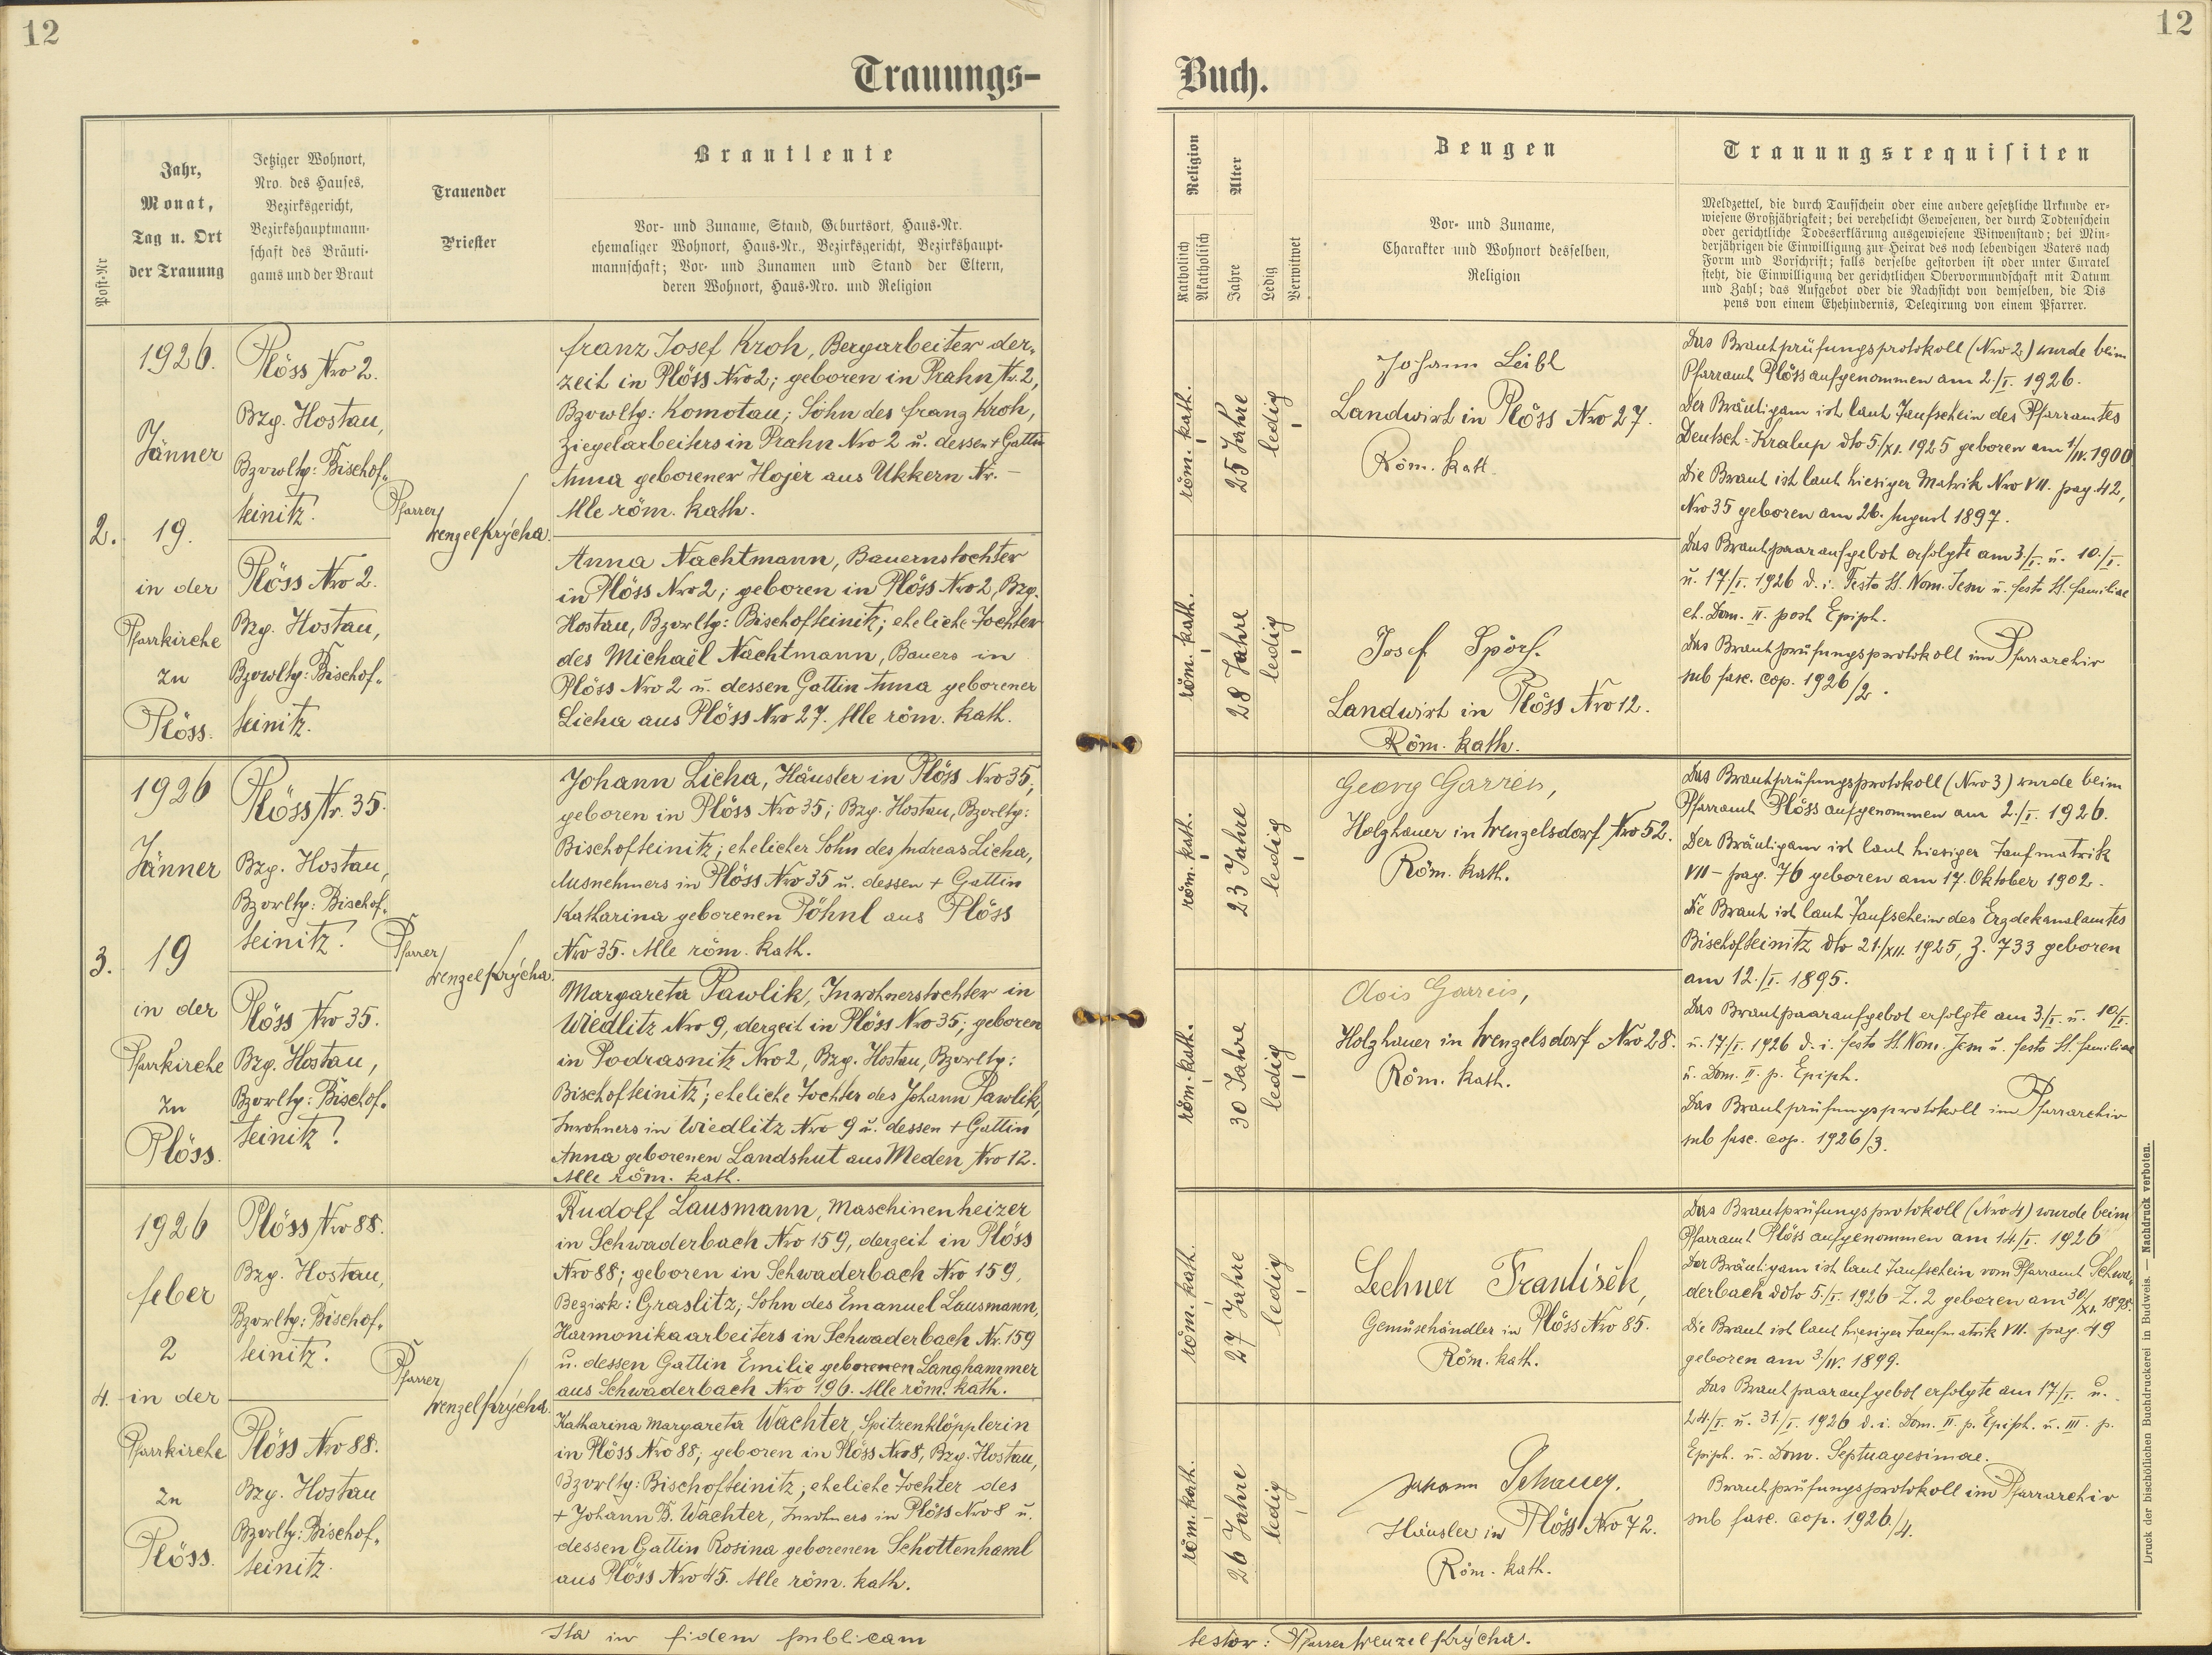 12
12
Trauungs-
Buch.
Post-Nr
Jahr,
Monat,
Tag u. Ort
der Trauung
Jetziger Wohnort,
Nro. des Hauses,
Bezirksgericht,
Bezirkshauptmann-
schaft des Bräuti-
gams und der Braut
Trauender
Priester
Brautleute
Vor- und Zuname, Stand, Geburtsort, Haus-Nr.
ehemaliger Wohnort, Haus-Nr., Bezirksgericht, Bezirkshaupt-
mannschaft; Vor- und Zunamen und Stand der Eltern,
deren Wohnort, Haus-Nro. und Religion
Religion
Katholisch
Akatholisch
Alter
Jahre
Ledig
Verwitwet
Zeugen
Vor- und Zuname,
Charakter und Wohnort desselben,
Religion
Trauungsrequisiten
Meldzettel, die durch Taufschein oder eine andere gesetzliche Urkunde er-
wiesene Großjährigkeit; bei verehelicht Gewesenen, der durch Todtenschein
oder gerichtliche Todeserklärung ausgewiesene Witwenstand; bei Min-
derjährigen die Einwilligung zur Heirat des noch lebendigen Vaters nach
Form und Vorschrift; falls derselbe gestorben ist oder unter Curatel
steht, die Einwilligung der gerichtlichen Obervormundschaft mit Datum
und Zahl; das Aufgebot oder die Nachsicht von demselben, die Dis
pens von einem Ehehindernis, Delegirung von einem Pfarrer.
2.
1926.
Jänner
19.
in der
Pfarrkirche
zu
Plöss.
Plöss Nro 2.
Bzg. Hostau,
Bzvwltg: Bischof„
teinitz.
Plöss Nro 2.
Bzg. Hostau,
Bzvwltg: Bischof„
teinitz.
Pfarrer
Wenzel Krýcha.
Franz Josef Kroh, Bergarbeiter der„
zeit in Plöss Nro 2; geboren in Prahn Nr. 2,
Bzvwltg: Komotau; Sohn des Franz Kroh,
Ziegelarbeiters in Prahn Nro 2 u. dessen + Gattin
Anna geborener Hojer aus Ukkern Nr. –
Alle röm. kath.
Anna Nachtmann, Bauernstochter
in Plöss Nro 2; geboren in Plöss Nro 2, Bzg.
Hostau, Bzvwltg: Bischofteinitz; eheliche Tochter
des Michaël Nachtmann, Bauers in
Plöss Nro 2 u. dessen Gattin Anna geborener
Licha aus Plöss Nro 27. Alle röm. kath.
röm. kath.
25 Jahre
ledig
röm. kath.
28 Jahre
ledig
Johann Leibl
Landwirt in Plöss Nro 27.
Röm. kath.
Josef Spörl.
Landwirt in Plöss Nro 12.
Röm. kath.
Das Brautprüfungsprotokoll (Nro 2) wurde beim
Pfarramt Plöss aufgenommen am 2./I. 1926.
Der Bräutigam ist laut Taufschein des Pfarramtes
Deutsch-Kralup dto 5/XI. 1925 geboren am 1/IV. 1900
Die Braut ist laut hiesiger Matrik Nro VII. pag. 42,
Nro 35 geboren am 26. August 1897.
Das Brautpaaraufgebot erfolgte am 3./I. u. 10./I.
u. 17/I. 1926 d. i. Festo SS. Nom. Jesu u. festo SS. familiae
et. Dom. II. post Epiph.
Das Brautprüfungsprotokoll im Pfarrarchiv
sub fasc. cop. 1926/2.
3.
1926
Jänner
19
in der
Pfarrkirche
zu
Plöss.
Plöss Nr. 35.
Bzg. Hostau,
Bzvwltg: Bischof„
teinitz.
Plöss Nro 35.
Bzg. Hostau,
Bzvwltg: Bischof„
teinitz.
Pfarrer
Wenzel Krýcha.
Johann Licha, Häusler in Plöss Nro 35,
geboren in Plöss Nro 35; Bzg. Hostau, Bzvwltg:
Bischofteinitz; ehelicher Sohn des Andreas Licha,
Ausnehmers in Plöss Nro 35 u. dessen + Gattin
Katharina geborenen Pöhnl aus Plöss
Nro 35. Alle röm. kath.
Margareta Pawlik, Inwohnerstochter in
Wiedlitz Nro 9, derzeit in Plöss Nro 35; geboren
in Podrasnitz Nro 2, Bzg. Hostau, Bzvwltg:
Bischofteinitz; eheliche Tochter des Johann Pawlik,
Inwohners in Wiedlitz Nro 9 u. dessen + Gattin
Anna geborenen Landshut aus Meden Nro 12.
Alle röm. kath.
röm. kath.
23 Jahre
ledig
röm. kath.
30 Jahre
ledig
Georg Garreis,
Holzhauer in Wenzelsdorf Nro 52.
Röm. kath.
Alois Garreis,
Holzhauer in Wenzelsdorf Nro 28.
Röm. kath.
Das Brautprüfungsprotokoll (Nro 3) wurde beim
Pfarramt Plöss aufgenommen am 2./I. 1926.
Der Bräutigam ist laut hiesiger Taufmatrik
VII – pag. 76 geboren am 17. Oktober 1902.
Die Braut ist laut Taufschein des Erzdekanalamtes
Bischofteinitz dto 21./XII. 1925, Z. 733 geboren
am 12./I. 1895.
Das Brautpaaraufgebot erfolgte am 3/I. u. 10/I.
u. 17/I. 1926 d. i. festo SS. Nom. Jesu u. festo SS. familiae
u. Dom. II. p. Epiph.
Das Brautprüfungsprotokoll im Pfarrarchiv
sub fasc. cop. 1926/3.
4.
1926
Feber
2
in der
Pfarrkirche
zu
Plöss.
Plöss Nro 88.
Bzg. Hostau,
Bzvwltg: Bischof„
teinitz.
Plöss Nro 88.
Bzg. Hostau
Bzvwltg: Bischof„
teinitz.
Pfarrer
Wenzel Krýcha.
Rudolf Lausmann, Maschinenheizer
in Schwaderbach Nro 159, derzeit in Plöss
Nro 88; geboren in Schwaderbach Nro 159,
Bezirk: Graslitz; Sohn des Emanuel Lausmann,
Harmonikaarbeiters in Schwaderbach Nr. 159
u. dessen Gattin Emilie geborenen Langhammer
aus Schwaderbach Nro 196. Alle röm. kath.
Katharina Margareta Wachter, Spitzenklöpplerin
in Plöss Nro 88; geboren in Plöss Nro 8, Bzg. Hostau,
Bzvwltg: Bischofteinitz; eheliche Tochter des
+ Johann B. Wachter, Inwohners in Plöss Nro 8 u.
dessen Gattin Rosina geborenen Schottenhaml
aus Plöss Nro 45. Alle röm. kath.
röm. kath.
27 Jahre
ledig
röm. kath.
26 Jahre
ledig
Lechner František,
Gemüsehändler in Plöss Nro 85.
Röm. kath.
Johann
Häusler in Plöss Nro 72.
Röm. kath.
Das Brautprüfungsprotokoll (Nro 4) wurde beim
Pfarramt Plöss aufgenommen am 14/I. 1926
Der Bräutigam ist laut Taufschein vom Pfarramt Schwa„
derbach ddto 5./I. 1926 – Z. 2 geboren am 30/XI. 1898.
Die Braut ist laut hiesiger Taufmatrik VII. pag. 49
geboren am 3/IV. 1899.
Das Brautpaaraufgebot erfolgte am 17/I. u.
24/I. u. 31/I. 1926 d. i. Dom. II. p. Epiph. u. III. p.
Epiph. u. Dom. Septuagesimae.
Brautprüfungsprotokoll im Pfarrarchiv
sub fasc. cop. 1926/4.
Ita in fidem publicam
testor: Pfarrer Wenzel Krýcha.
Druck der bischöflichen Buchdruckerei in Budweis. — Nachdruck verboten.